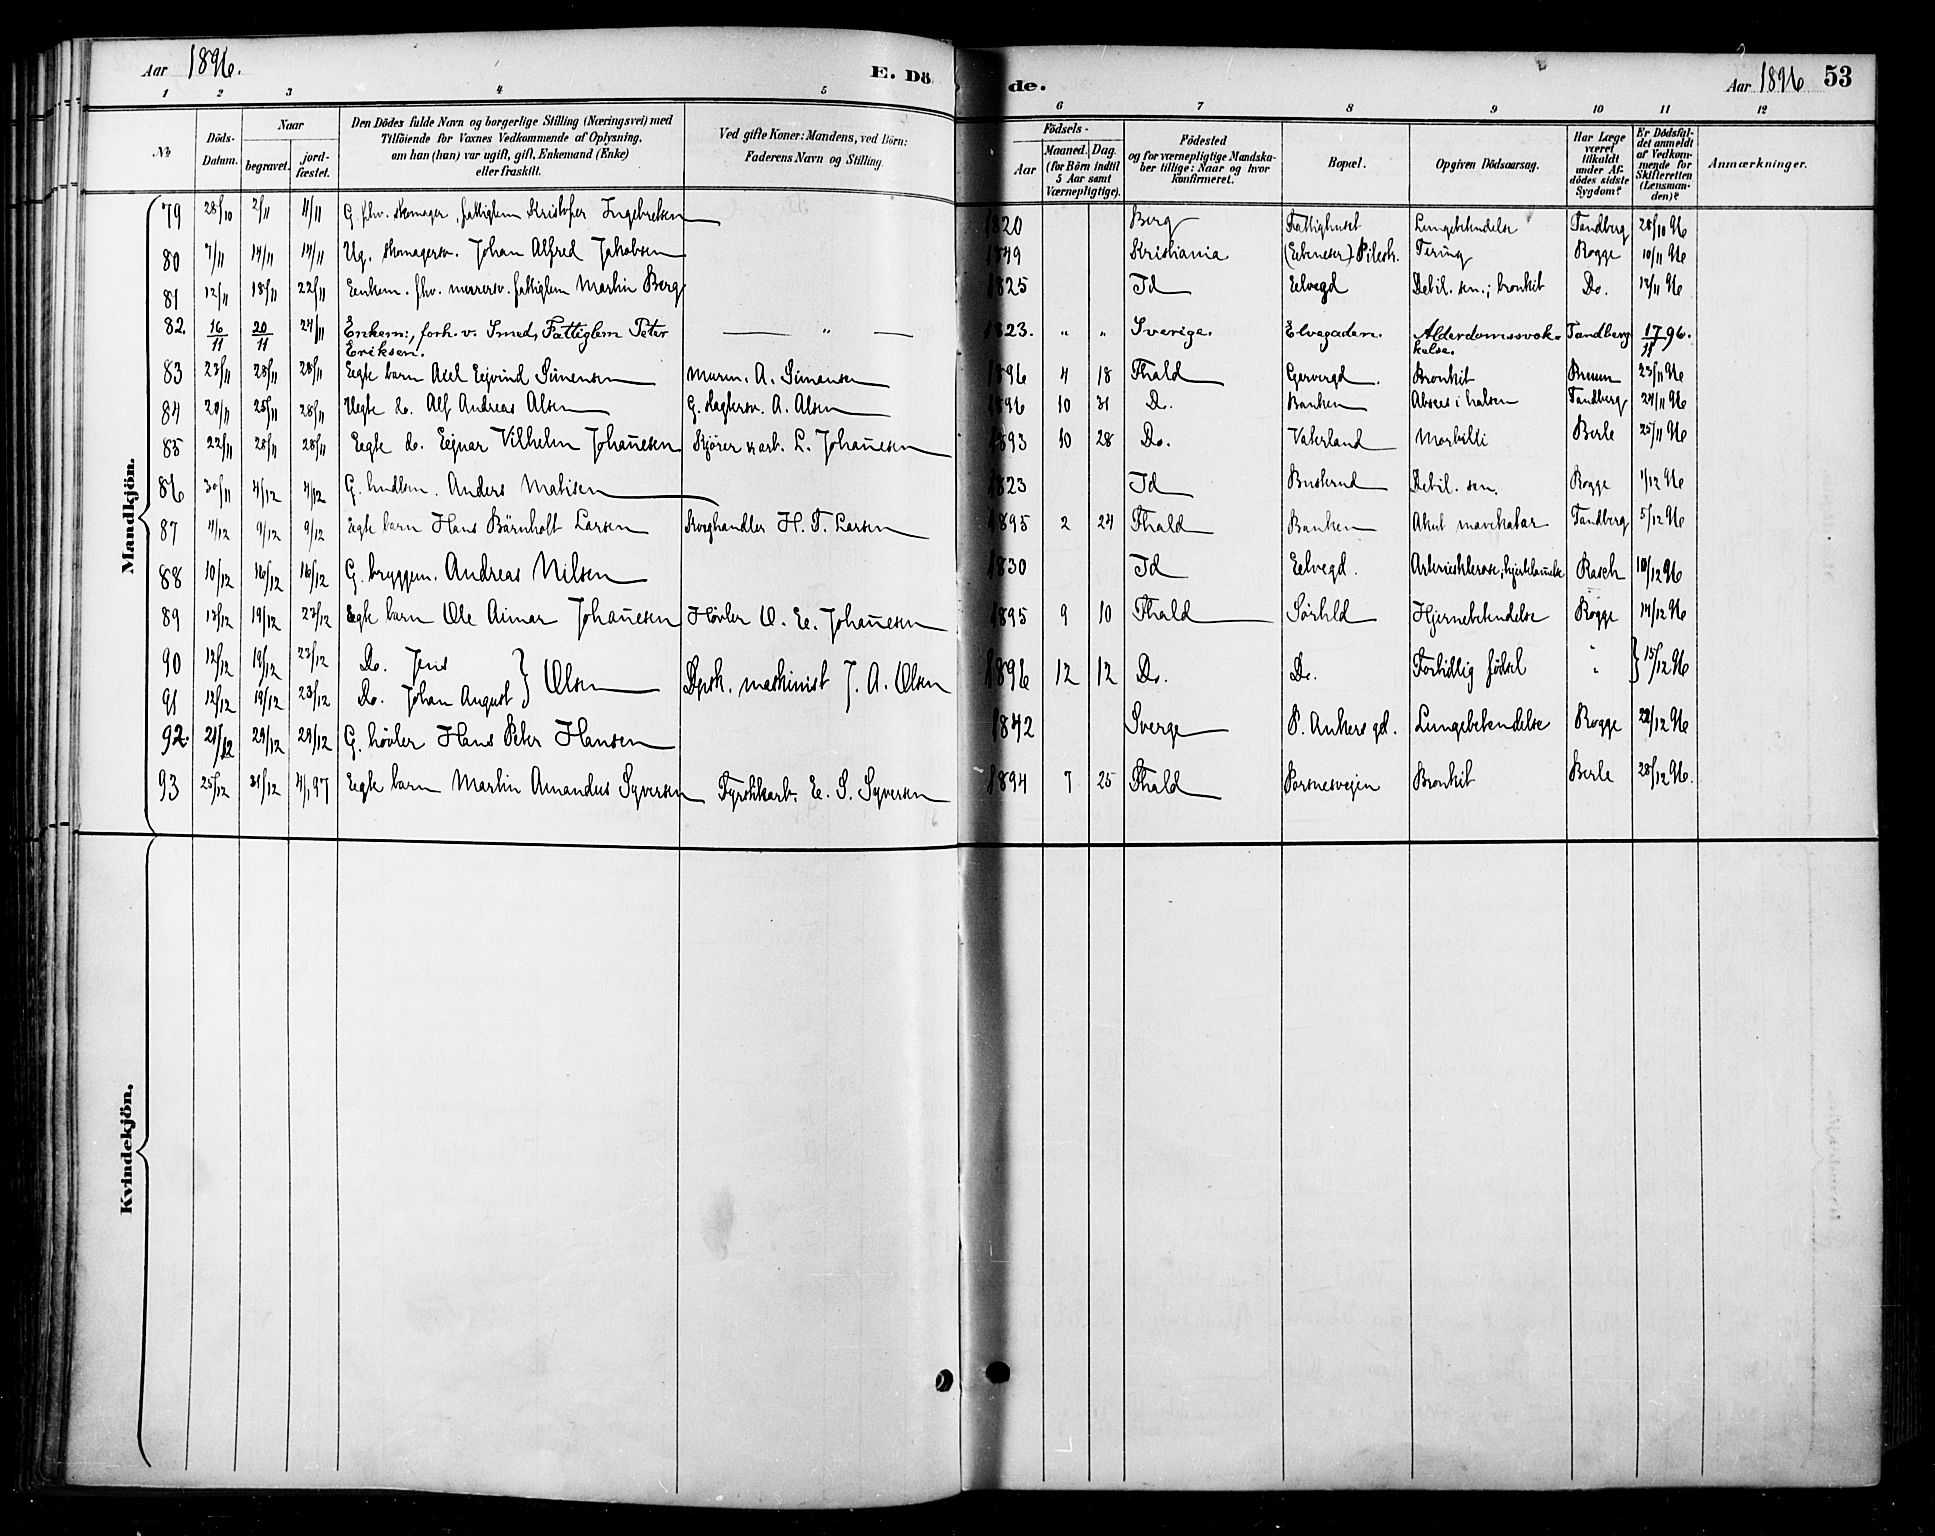 Aar 1896.
E. Dö
de.
Aar 1896
53
1 2 3 4 5 6 7 8 9 10 11 12
No.
Döds-Datum.
Naar
begravet.
jord-fæstet.
Den Dödes fulde Navn og borgerlige Stilling (Næringsvei) med
Tilföiende for Voxnes Vedkommende af Oplysning,
om han (hun) var ugift, gift, Enkemand (Enke)
eller fraskilt.
Ved gifte Koner: Mandens, ved Börn:
Faderens Navn og Stilling.
Födsels-
Aar
Maaned. Dag.
(for Börn indtil
5 Aar samt
Værnepligtige).
Födested
og for værnepligtige Mandska-
ber tillige: Naar og hvor
konfirmeret.
Bopæl.
Opgiven Dödsaarsag.
Har Læge
været
tilkaldt
under Af-
dödes sidste
Sygdom?
Er Dödsfal-
det anmeldt
af Vedkom-
mende for
Skifteretten
(Lensman-
den)?
Anmærkninger.
Mandkjön.
79 28/10 2/11 4/11 G. fhv. skomager, fattiglem Kristofer Ingebretsen 1820 Berg Fattighuset Lungebetændelse Tandberg 28/10 96
80 7/11 14/11 14/11 Ug. skomagersv. Johan Alfred Jakobsen 1849 Kristiania (Ebeneser) Pilestr. Tæring Rogge 10/11 96
81 12/11 18/11 22/11 Enkem. fhv. murersv. fattiglem Martin Berg 1825 Id Elvegd Debil. sen.; bronkit Do. 12/11 96
82. 16/11 20/11 24/11 Enkem:, forh. v. Smed, Fattiglem Peter — „ — 1823. „ „ Sverige. Elvegaden. Alderdomssvæk- Tandberg 17/11 96.
Eriksen. kelse.
83 23/11 28/11 28/11 Egte barn Axel Eyvind Simensen Murm. A. Simensen 1896 4 18 Fhald Garverg. Bronkit Bruun 23/11 96
84 20/11 25/11 28/11 Uegte do. Alf Andreas Alsen G. slagtersv. A. Alsen 1896 10 31 Do. Banken Absces i halsen Tandberg 24/11 96
85 22/11 28/11 28/11 Egte do. Ejnar Vilhelm Johansen L. Johansen 1893 10 28 Do. Vaterland Morbilli Berle 25/11 96
86 30/11 4/12 4/12 G. Anders Matisen 1823 Id Buskerud Debil. sen. Rogge 1/12 96
87 4/12 9/12 9/12 Egte barn Hans Bärnholt Larsen Kveghandler H. T. Larsen 1895 2 24 Fhald Banken Akut mavekatar Tandberg 5/12 96
88 10/12 16/12 16/12 G. bryggem. Andreas Nilsen 1830 Id Elvegd. Arteriesklerose; hjertelamelse Rasch 10/12 96
89 13/12 19/12 23/12 Egte barn Ole Aimar Johansen Høvler O. E. Johansen 1895 9 10 Fhald Sørhld Hjernebetændelse Rogge 14/12 96
90 12/12 19/12 23/12 Do. Jens } Olsen Dpsk. maskinist J. A. Olsen 1896 12 12 Do. Do. Fortidlig fødsel „ } 15/12 96
91 12/12 19/12 23/12 Do. Johan August
92. 21/12 29/12 29/12 G. høvler Hans Peter Hansen 1842 Sverge P. Ankers gd. Lungebetændelse Rogge 22/12 96
93 25/12 31/12 4/1 97 Egte barn Martin Amandus Syversen Fyrstikarb. E. S. Syversen 1894 7 25 Fhald Porsnesvejen Bronkit Berle 28/12 96.
Kvindekjön.